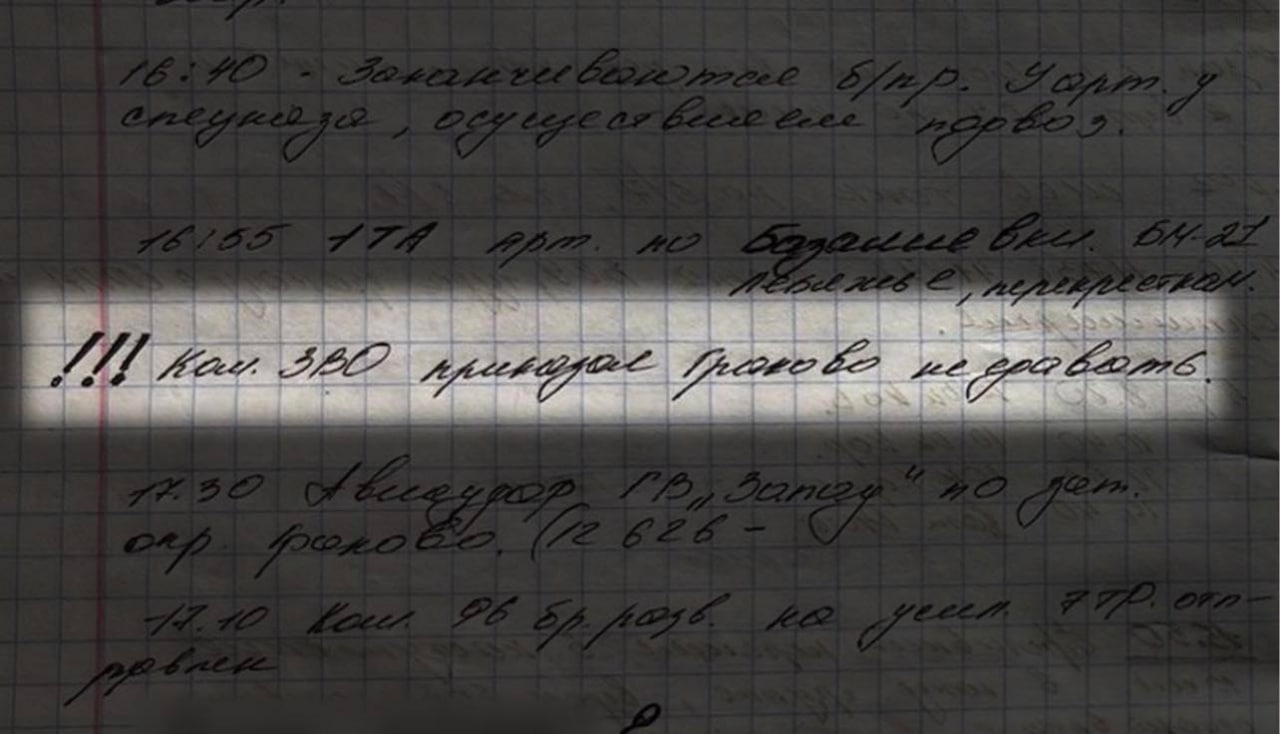 16:40 - Заканчиваются б/пр. У арт. у
спецназа, осуществляем подвоз.
16:55 1ТА арт. по Базалиевки. БМ-21
Лебяжье, перекрестком.
!!! Ком. ЗВО приказал Граково не сдавать.
17.30 Авиаудар ГВ „Запад“ по зап.
окр. Граково. (12 626 -
17.10 Ком. 96 бр. разв. на усил. 7 ТР. отп-
равлен